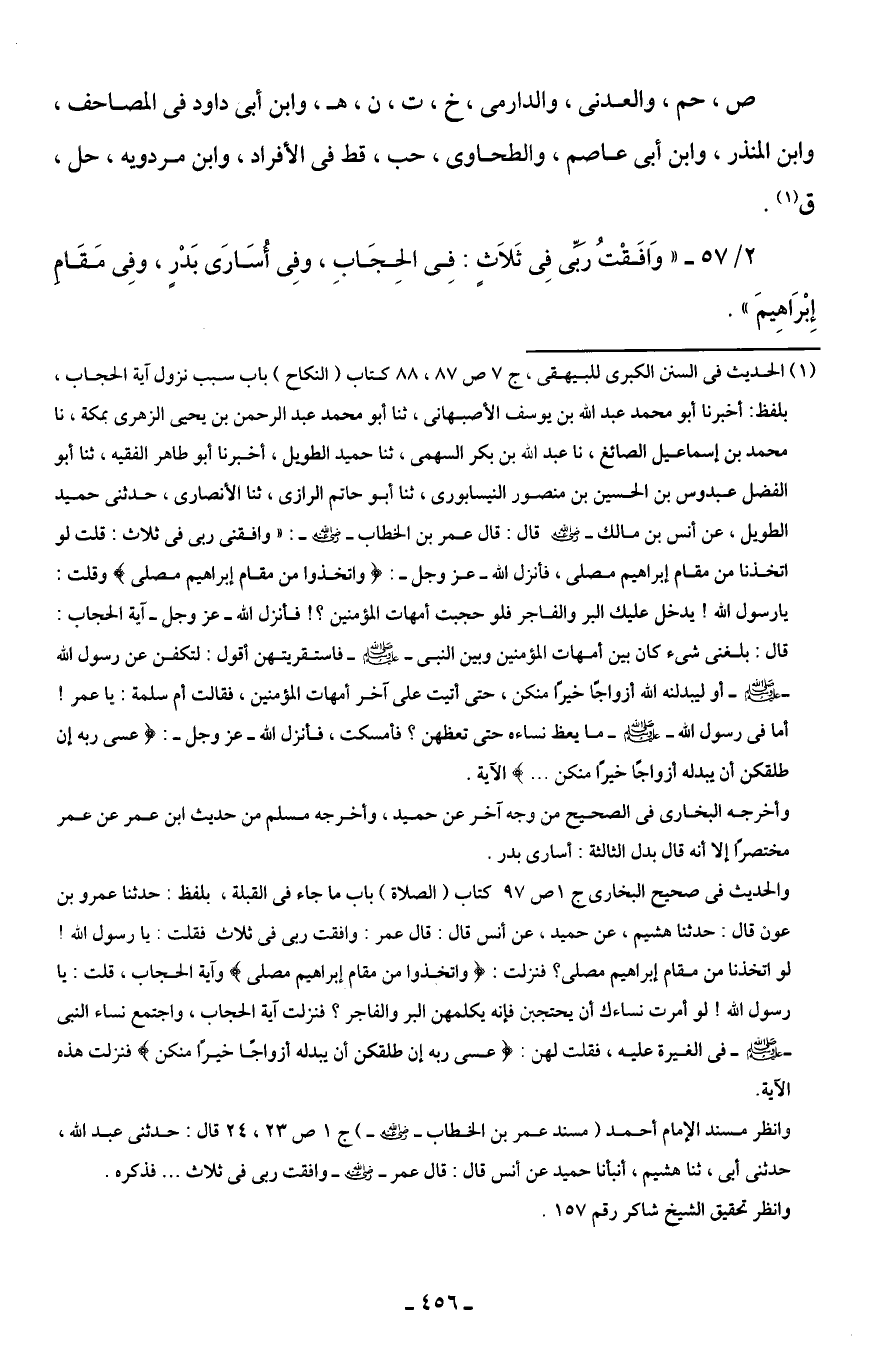 ص ، حم ، والعـدنى ، والدارمى ، خ ، ت ، ن ، هـ ، وابن أبى داود فى المصـاحف ،
وابن المنذر ، وابن أبى عـاصم ، والطحـاوى ، حب ، قط فى الأفراد ، وابن مـردويه ، حل ،
ق(١) .
٢/ ٥٧ ـ « وَافَـقْتُ رَبِّى فِى ثَلاَثٍ : فِـى الحِـجَـابِ ، وفِى أُسَـارَى بَدْرٍ ، وفِى مَـقَـامِ
إِبْرَاهِيمَ » .
(١) الحـديث فى السنن الكبرى للبيـهقى ، ج ٧ ص ٨٧ ، ٨٨ كـتاب ( النكاح ) باب سـبب نزول آية الحجـاب ،
بلفظ : أخبرنا أبو محمد عبد الله بن يوسف الأصبـهانى ، ثنا أبو محمد عبد الرحمن بن يحيى الزهرى بمكة ، نا
محمد بن إسماعـيل الصائغ ، نا عبد الله بن بكر السهمى ، ثنا حميد الطويل ، أخـبرنا أبو طاهر الفقيه ، ثنا أبو
الفضل عبـدوس بن الحسين بن منصـور النيسابورى ، ثنا أبـو حاتم الرازى ، ثنا الأنصارى ، حـدثنى حمـيد
الطويل ، عن أنس بن مـالك ـ رضي الله عنه ـ قال : قال عمـر بن الخطاب ـ رضي الله عنه ـ : « وافـقنى ربى فى ثلاث : قلت لو
اتخـذنا من مقام إبراهيم مـصلى ، فأنزل الله ـ عـز وجل ـ : ﴿ واتخـذوا من مقام إبراهيم مـصلى ﴾ وقلت :
يارسول الله ! يدخل عليك البر والفـاجر فلو حجبت أمهات المؤمنين ؟! فـأنزل الله ـ عز وجل ـ آية الحجاب :
قال : بلـغنى شىء كان بين أمـهات المؤمنين وبين النبـى ـ ﷺ ـ فاستـقريتـهن أقول : لتكفـن عن رسول الله
ـ ﷺ ـ أو ليبدلنه الله أزواجًا خيرًا منكن ، حتى أتيت على آخـر أمهات المؤمنين ، فقالت أم سلمة : يا عمر !
أما فى رسول الله ـ ﷺ ـ مـا يعظ نساءه حتى تعظهن ؟ فأمسكت ، فـأنزل الله ـ عز وجل ـ : ﴿ عسى ربه إن
طلقكن أن يبدله أزواجًا خيرًا منكن ... ﴾ الآية .
وأخرجـه البخارى فى الصحيح من وجه آخـر عن حمـيد ، وأخـرجه مـسلم من حديث ابن عـمر عن عمر
مختصرًا إلا أنه قال بدل الثالثة : أسارى بدر .
والحديث فى صحيح البخارى ج ١ ص ٩٧ كتاب ( الصلاة ) باب ما جاء فى القبلة ، بلفظ : حدثنا عمرو بن
عون قال : حدثنا هشيم ، عن حميد ، عن أنس قال : قال عمر : وافقت ربى فى ثلاث فقلت : يا رسول الله !
لو اتخذنا من مـقام إبراهيم مصلى؟ فنزلت : ﴿ واتخـذوا من مقام إبراهيم مصلى ﴾ وآية الحـجاب ، قلت : يا
رسول الله ! لو أمرت نساءك أن يحتجبن فإنه يكلمهن البر والفاجر ؟ فنزلت آية الحجاب ، واجتمع نساء النبى
ـ ﷺ ـ فى الغيرة عليـه ، فقلت لهن : ﴿ عـسى ربه إن طلقكن أن يبدله أزواجـًا خيـرًا منكن ﴾ فنزلت هذه
الآية.
وانظر مـسند الإمام أحـمـد ( مسند عمـر بن الخطاب ـ رضي الله عنه ـ ) ج ١ ص ٢٣ ، ٢٤ قال : حـدثنى عبـد الله ،
حدثنى أبى ، ثنا هشيم ، أنبأنا حميد عن أنس قال : قال عمر ـ رضي الله عنه ـ وافقت ربى فى ثلاث ... فذكره .
وانظر تحقيق الشيخ شاكر رقم ١٥٧ .
ـ ٤٥٦ ـ